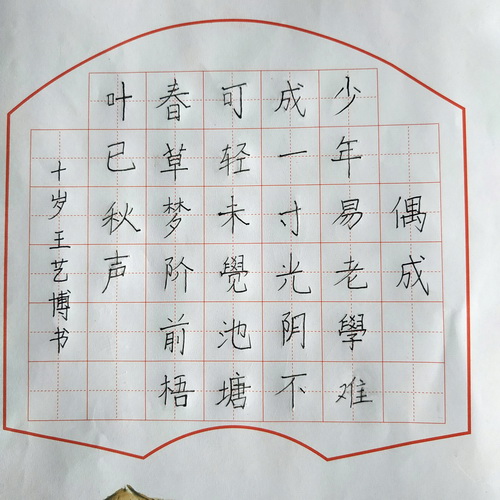 偶成
少年易老學难
成一寸光阴不
可轻未覺池塘
春草梦阶前梧
叶已秋声
十岁王艺博书